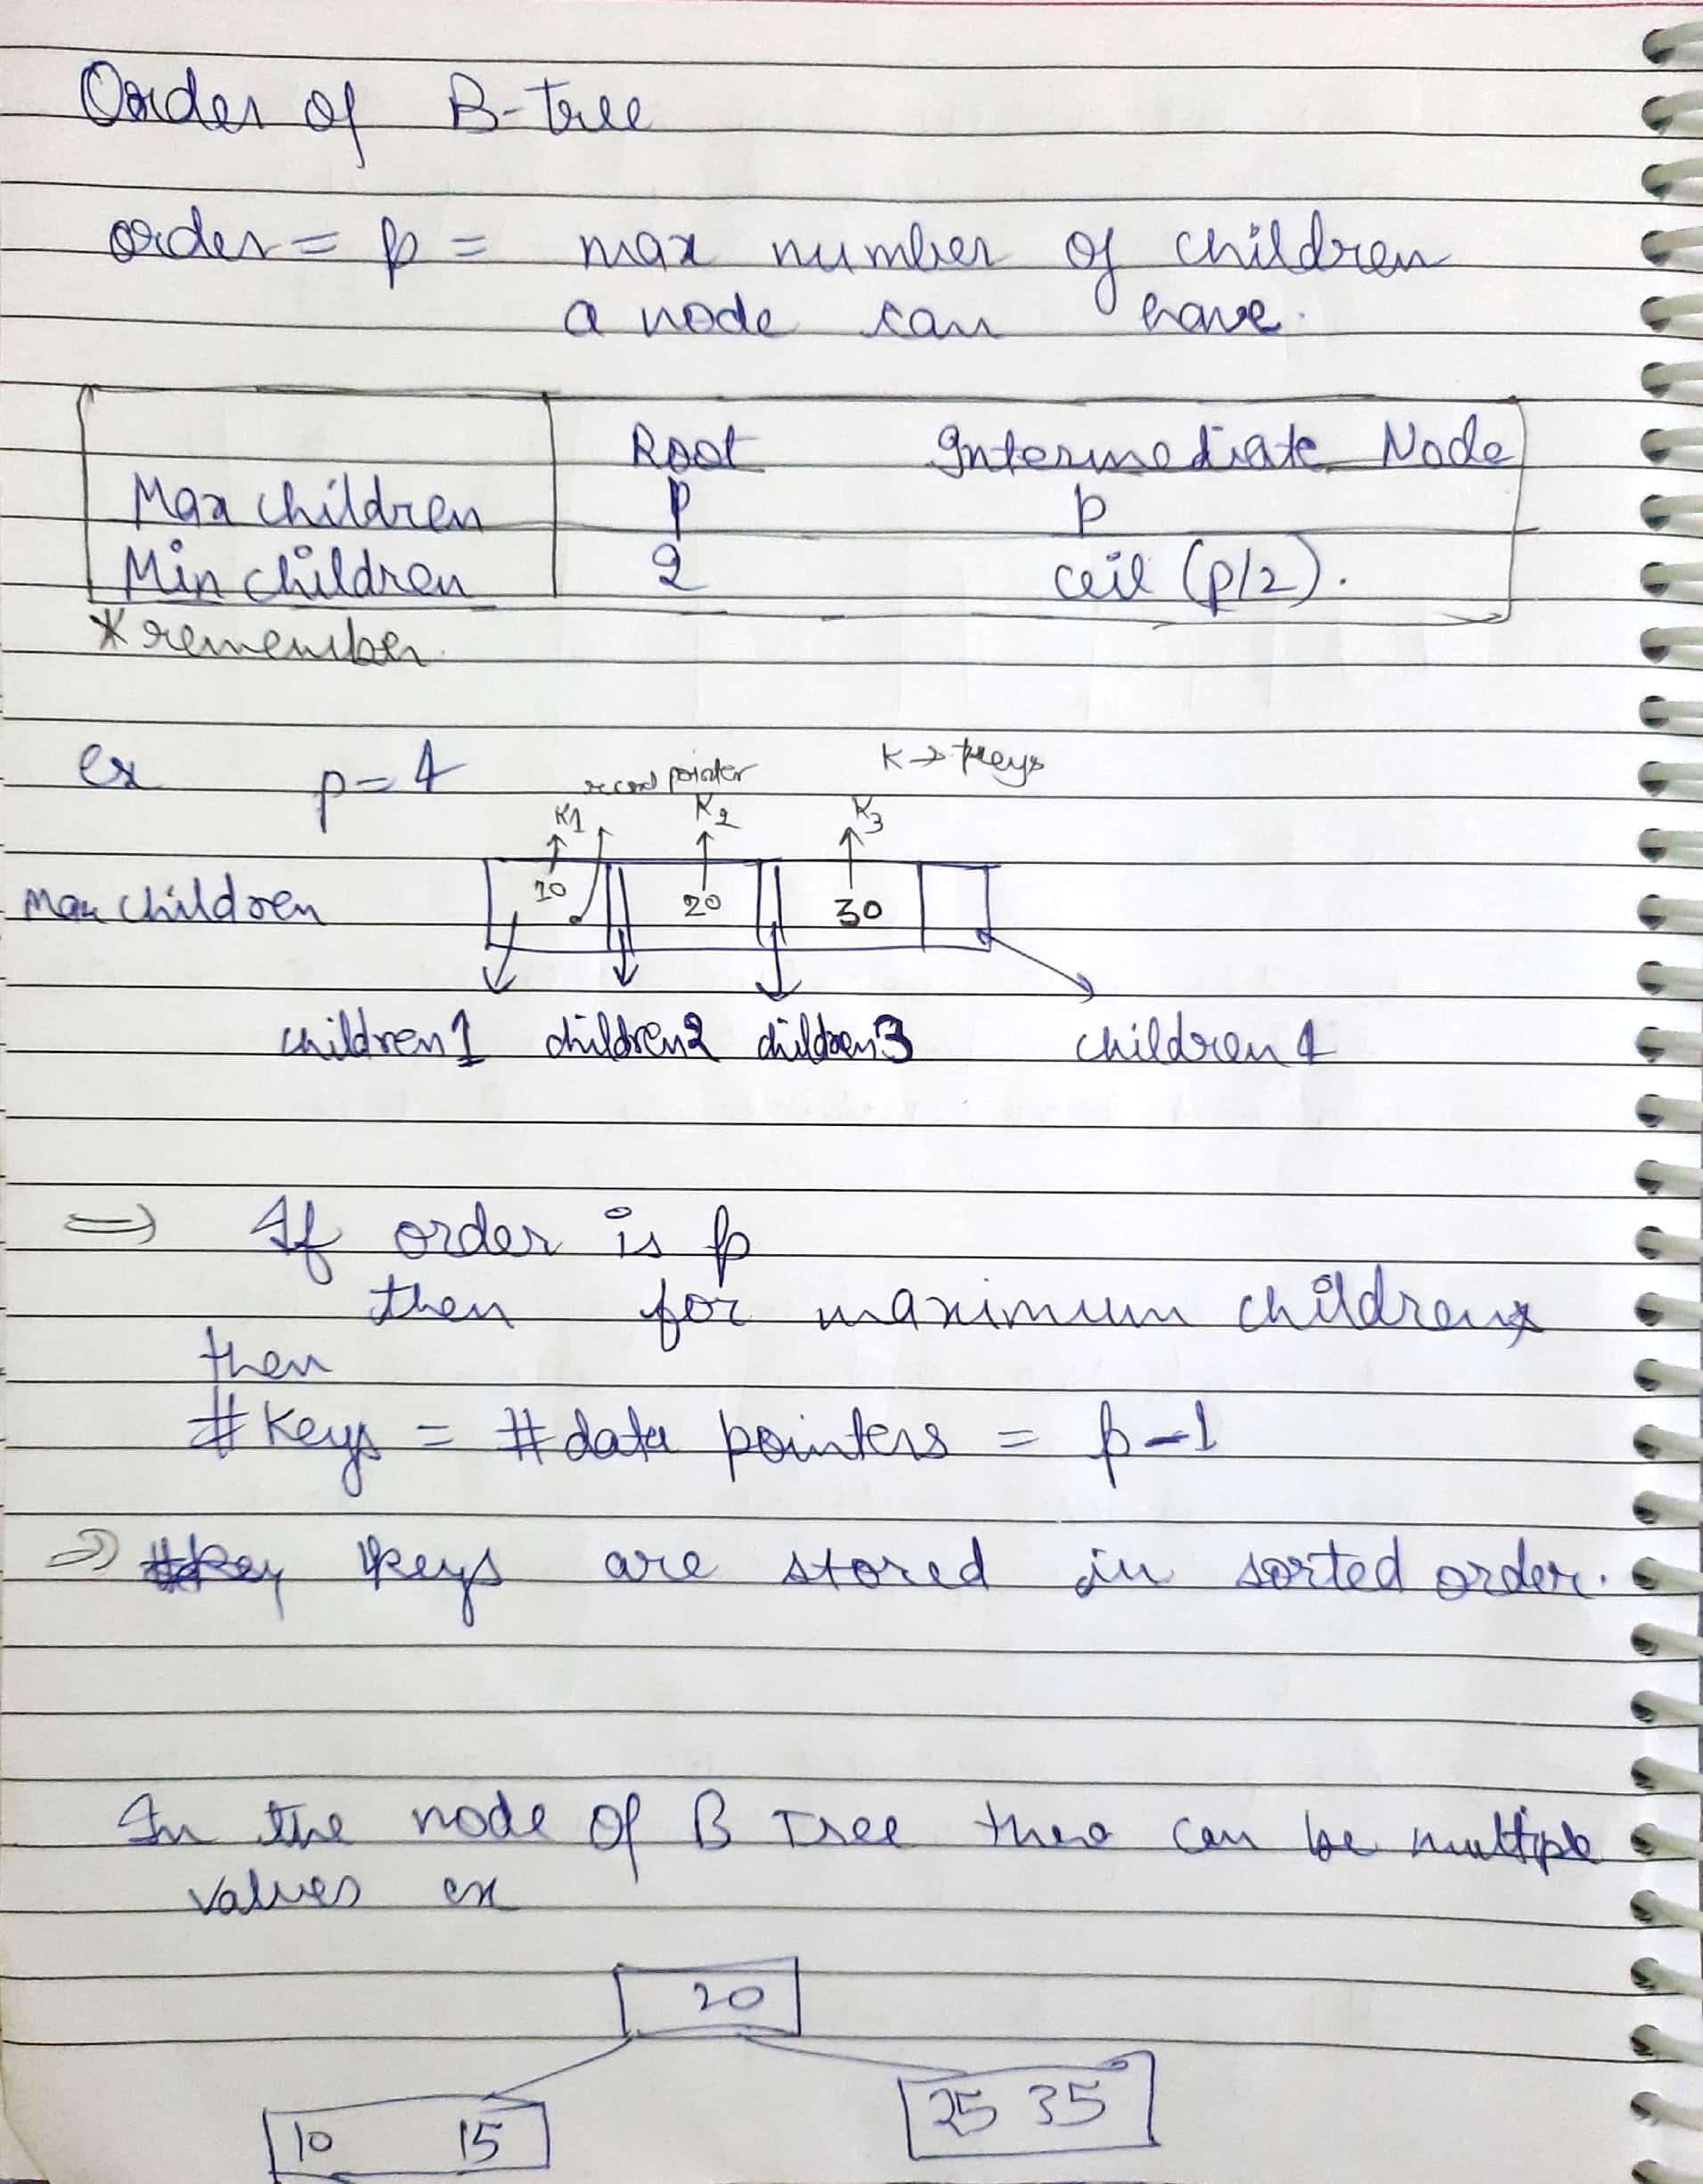 Order of B-tree
order = p = max number of children
a node can have.
Root Intermediate Node
Max children p p
Min children 2 ceil (p/2).
* remember
ex p = 4 record pointer K → keys
K1 K2 K3
Max children 10 20 30
children 1 children 2 children 3 children 4
⇒ If order is p
then for maximum children
then
#Keys = #data pointers = p-1
⇒ keys are stored in sorted order.
In the node of B Tree there can be multiple
values ex
20
10 15 25 35